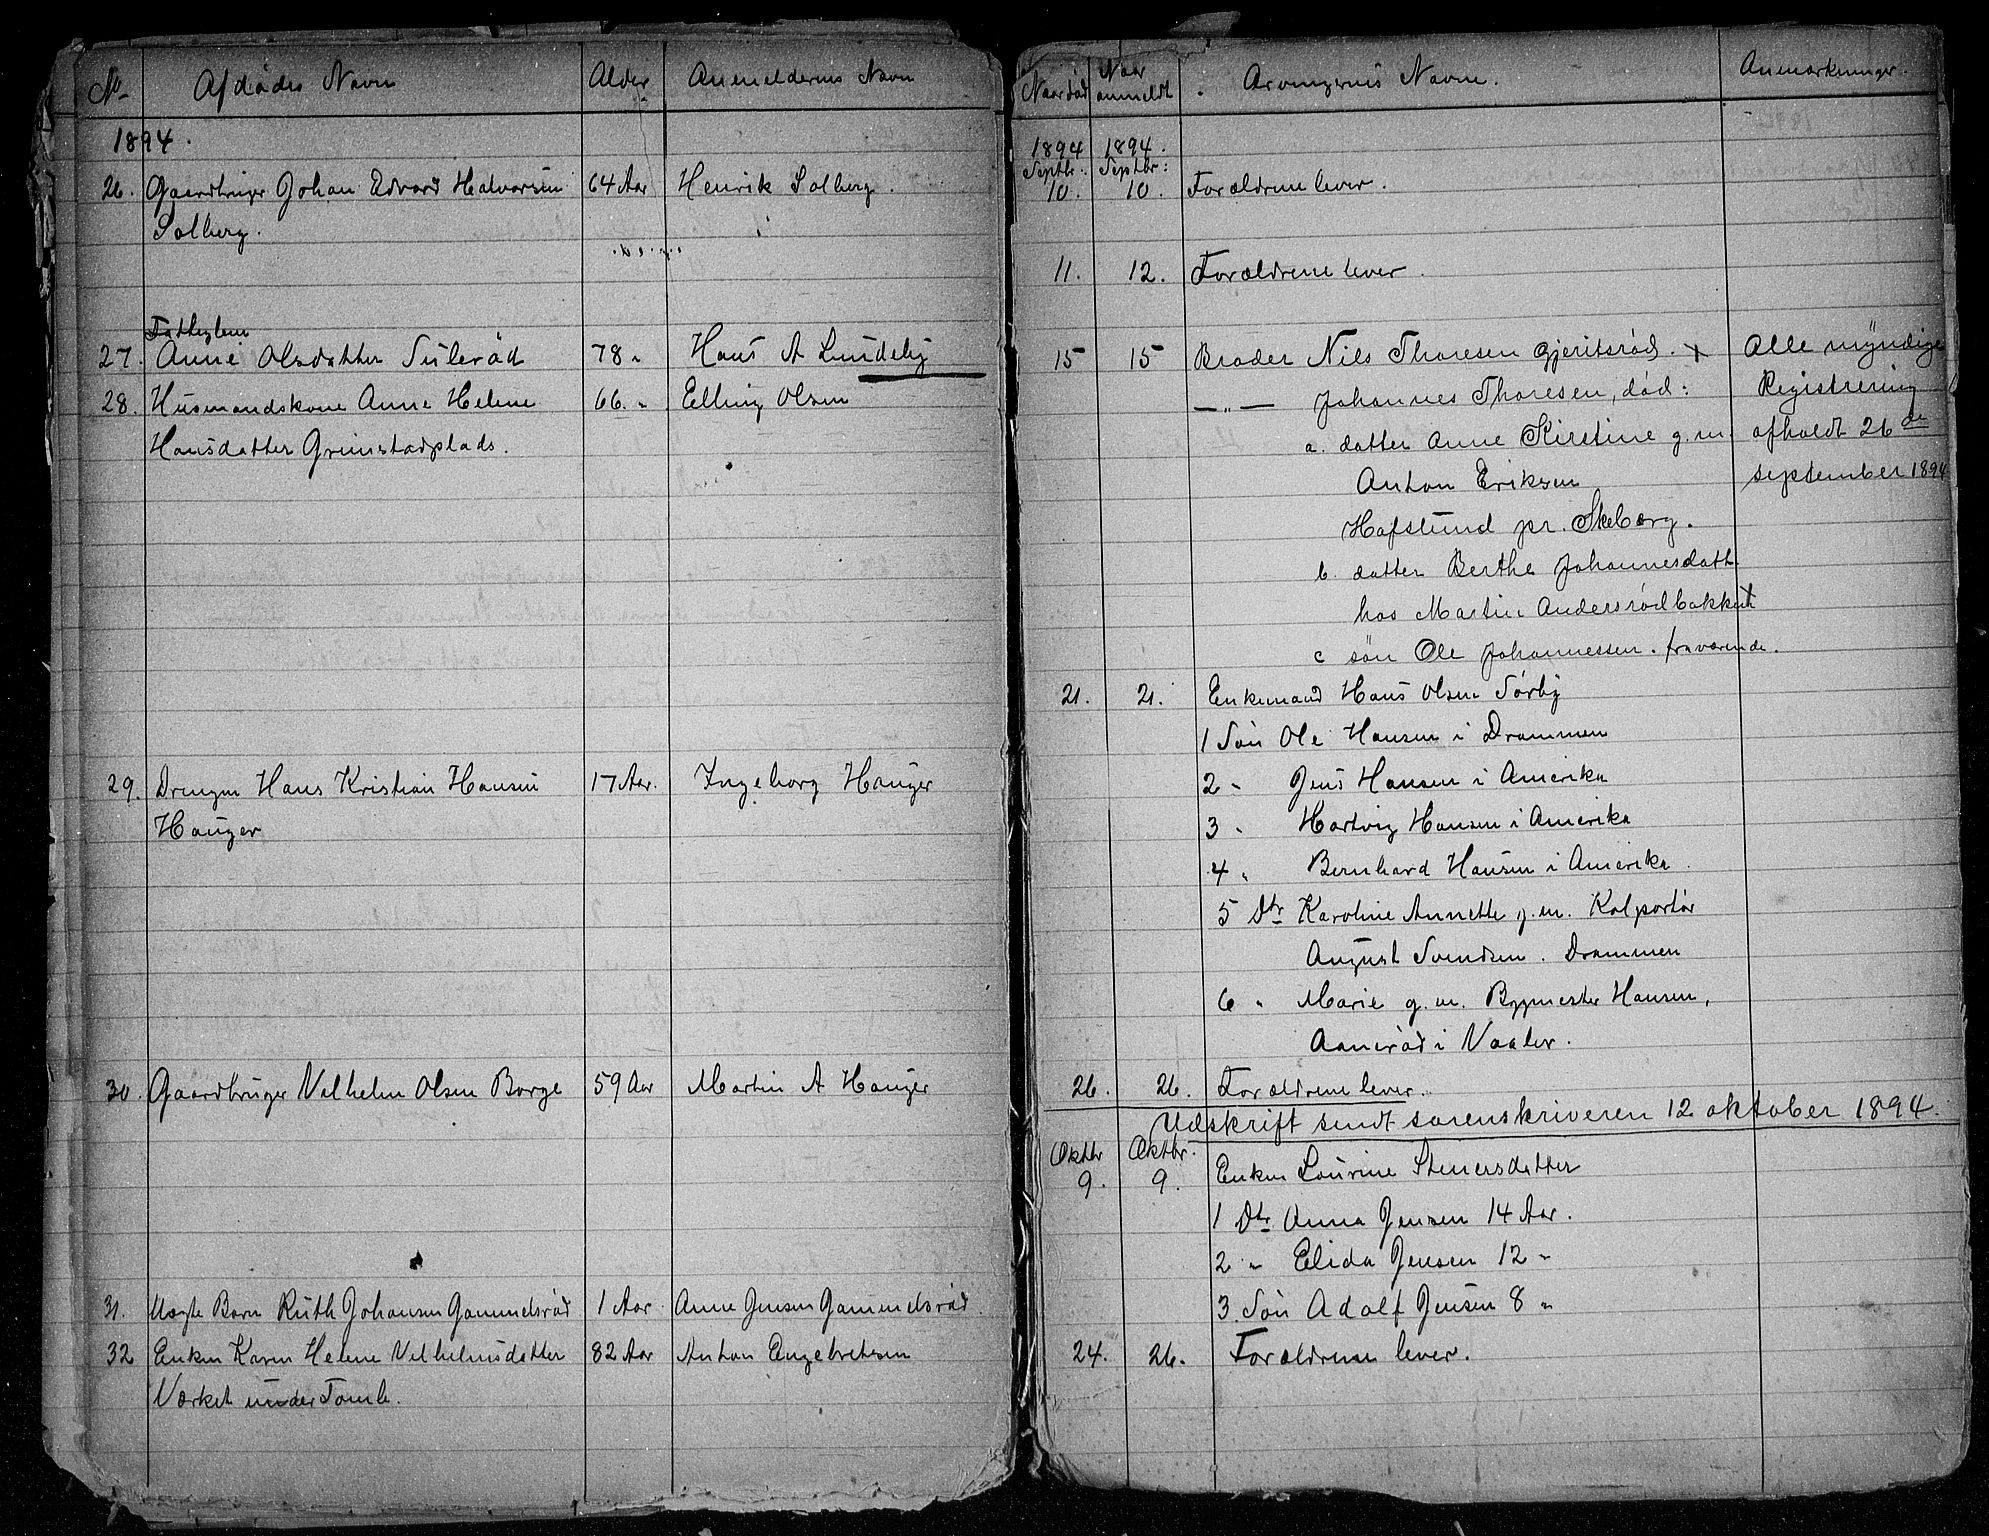 No
Afdødes Navn
Alder
Anmelderens Navn
1894.
26. Gaardbruger Johan Edvard Halvorsen 64 Aar Henrik Solberg.
Solberg.
Fattiglem
27. Anne Olsdatter Sulerød 78 " Hans A Lundeby
28. Husmandskone Anne Helene 66. " Elling Olsen
Hansdatter Grimstadplads.
29. Drengen Hans Kristian Hansen 17 Aar. Ingeborg Hauger
Hauger
30. Gaardbruger Vilhelm Olsen Borge 59 Aar Martin A Hauger
31. Uægte Barn Ruth Johansen Gammelsrød 1 Aar. Anne Jensen Gammelsrød.
32 Enken Karen Helene Vilhelmsdatter 82 Aar Anton Engebretsen
Værket under Tomb.
Naar død
Naar anmeldt
Arvingernes Navne.
Anmærkninger.
1894 1894.
Septbr. Septbr:
10. 10. Forældrene lever.
11. 12. Forældrene lever.
15 15 Broder Nils Thoresen Gjeritsrød. Alle myndige
—"— Johannes Thoresen, død: Registrering
a. datter Anne Kirstine g. m. afholdt 26de
Anton Eriksen september 1894
Hafslund pr. Skeberg.
b. datter Berthe Johannesdatt.
hos Martin Andersrødbakken
c søn Ole Johannessen. fraværende.
21. 21. Enkemand Hans Olsen Sørby
1 Søn Ole Hansen i Drammen
2 " Jens Hansen i Amerika
3 " Hartvig Hansen i Amerika
4 " Bernhard Hansen i Amerika.
5 Dtr Karoline Annette g. m. Kolportør
August Svendsen. Drammen
6 " Marie g. m. Bygmester Hansen,
Aanerød i Vaaler.
26. 26. Forældrene lever.
Udskrift sendt sorenskriveren 12 oktober 1894.
Oktbr Oktbr.
9. 9. Enken Lovrine Stenersdatter
1 Dtr Anna Jensen 14 Aar.
2 " Elida Jensen 12 "
3. Søn Adolf Jensen 8 "
24. 26. Forældrene lever.